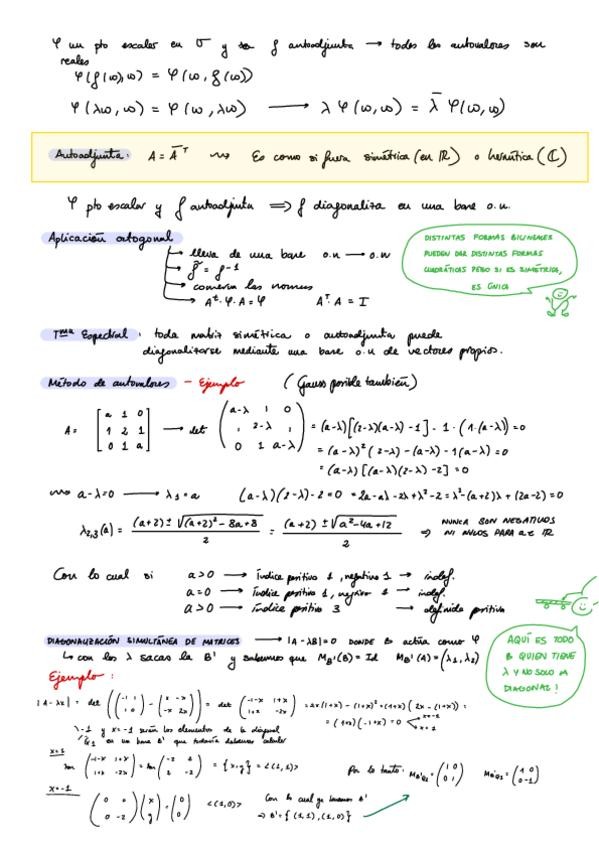 φ un pto escalar en V y f autoadjunta → todos los autovalores son
reales
φ(f(ω),ω) = φ(ω, f(ω))
φ(λω, ω) = φ(ω, λω) → λ φ(ω,ω) = λ̄ φ(ω,ω)
Autoadjunta: A = Ā^T ⇝ Es como si fuera simétrica (en ℝ) o hermítica (ℂ)
φ pto escalar y f autoadjunta ⟹ f diagonaliza en una base o.n.
Aplicación ortogonal
→ lleva de una base o.n → o.n
→ f̃ = f⁻¹
→ conserva las normas
→ A^t·φ·A = φ A^T·A = I
DISTINTAS FORMAS BILINEALES
PUEDEN DAR DISTINTAS FORMAS
CUADRÁTICAS PERO SI ES SIMÉTRICA,
ES ÚNICA
Tma Espectral: toda matriz simétrica o autoadjunta puede
diagonalizarse mediante una base o.n de vectores propios.
Método de autovalores - Ejemplo (Gauss posible también)
A = [a 1 0; 1 2 1; 0 1 a] → det (a-λ 1 0; 1 2-λ 1; 0 1 a-λ) = (a-λ)[(2-λ)(a-λ) - 1] - 1·(1·(a-λ)) = 0
= (a-λ)²(2-λ) - (a-λ) - 1(a-λ) = 0
= (a-λ)[(a-λ)(2-λ) - 2] = 0
⇝ a-λ=0 → λ₁ = a (a-λ)(2-λ) - 2 = 0 = 2a - aλ - 2λ + λ² - 2 = λ² - (a+2)λ + (2a-2) = 0
λ₂,₃(a) = ((a+2) ± √((a+2)² - 8a + 8))/2 = ((a+2) ± √(a² - 4a + 12))/2 ⇒ NUNCA SON NEGATIVOS
NI NULOS PARA a ∈ ℝ
Con lo cual si a>0 → índice positivo 1, negativo 1 → indef.
a=0 → índice positivo 1, negativo 1 → indef.
a>0 → índice positivo 3 → definida positiva
DIAGONALIZACIÓN SIMULTÁNEA DE MATRICES → |A - λB| = 0 DONDE B ACTÚA COMO φ
↳ con los λ sacas la B' y sabemos que M_B'(B) = Id M_B'(A) = (λ₁, λ₂)
AQUÍ ES TODO
B QUIEN TIENE
λ Y NO SOLO LA
DIAGONAL!
Ejemplo:
x=1
x=-1
Por lo tanto:
Con lo cual ya tenemos B'
⇒ B' = {(1,1),(1,0)}